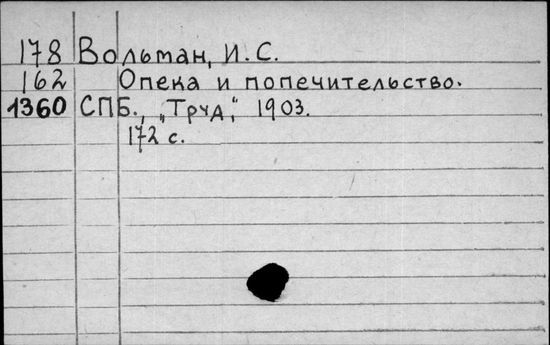 178 Вольман, И. С.
162 Опека и попечительство.
1360 СПБ., „Труд", 1903.
172 с.